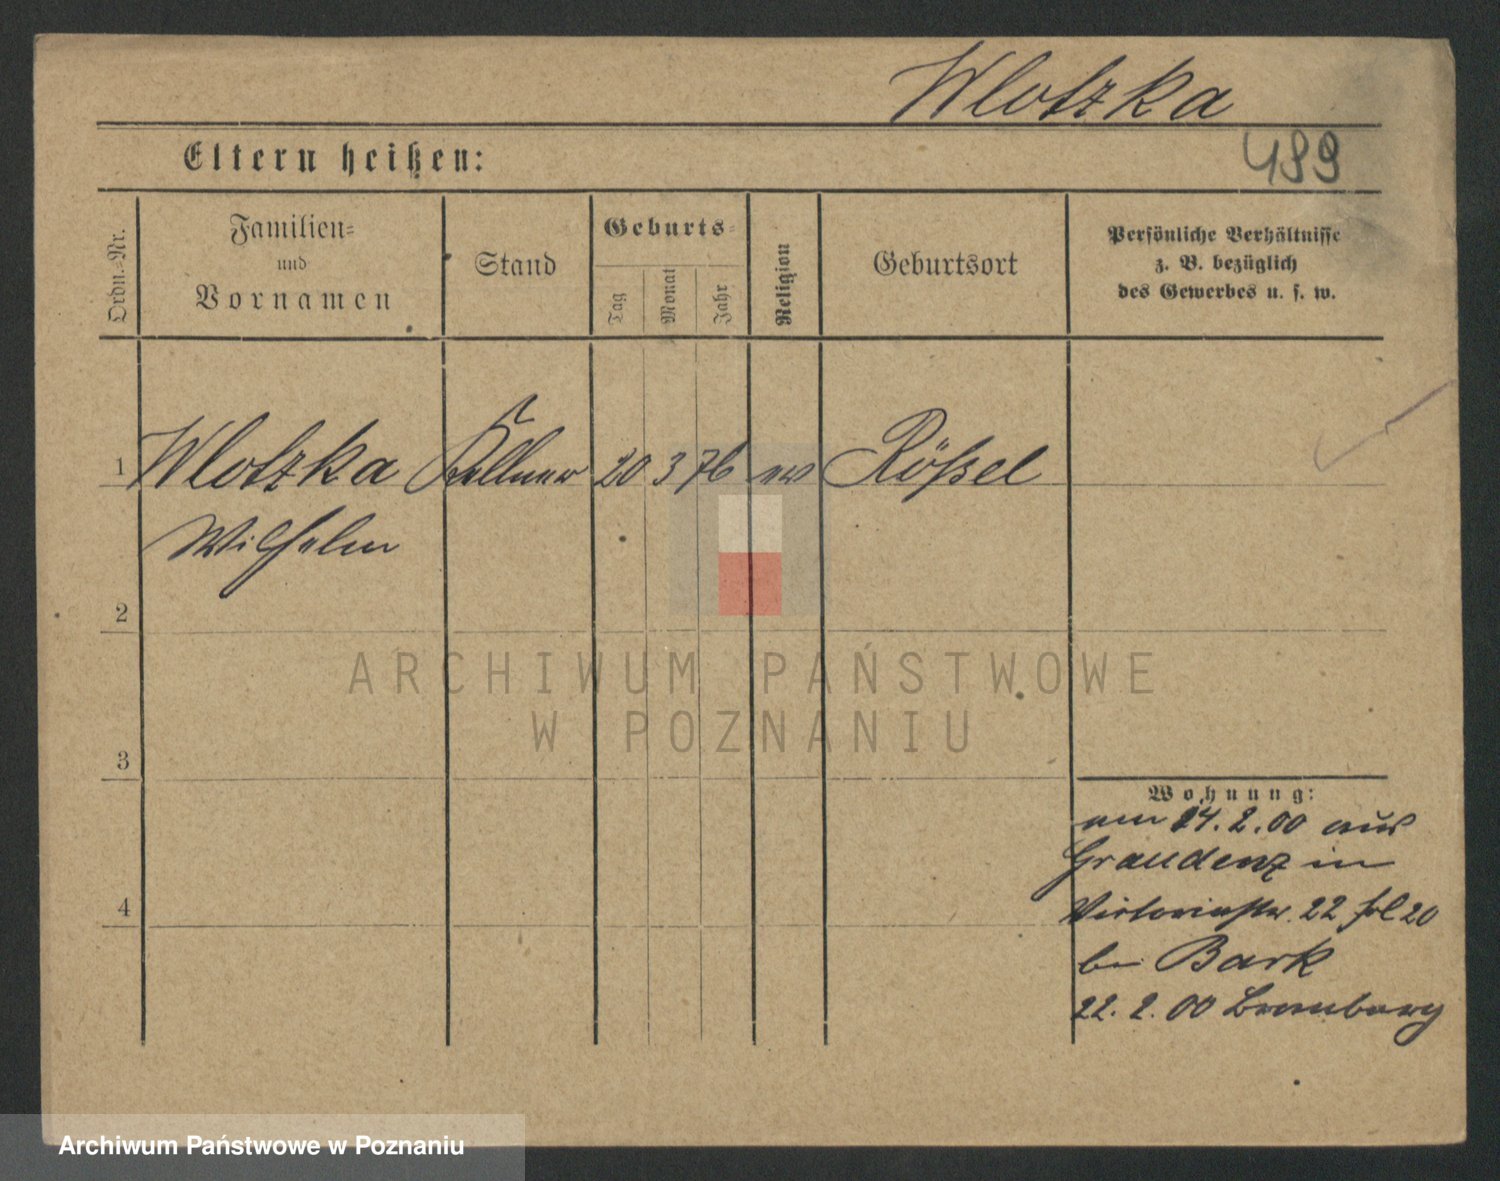 Wlotzka
Eltern heißen:
489
Ordn.-Nr.
Familien-
und
Vornamen
Stand
Geburts-
Tag
Monat
Jahr
Religion
Geburtsort
Persönliche Verhältnisse
z. B. bezüglich
des Gewerbes u. s. w.
1 Wlotzka Kellner 20 3 76 ev Rößel
Wilhelm
2
3
4
ARCHIWUM PAŃSTWOWE
W POZNANIU
Wohnung:
am 14. 2. 00 aus
Graudenz in
Victoriastr. 22 20
bei Bark
22. 2. 00 Bromberg
Archiwum Państwowe w Poznaniu